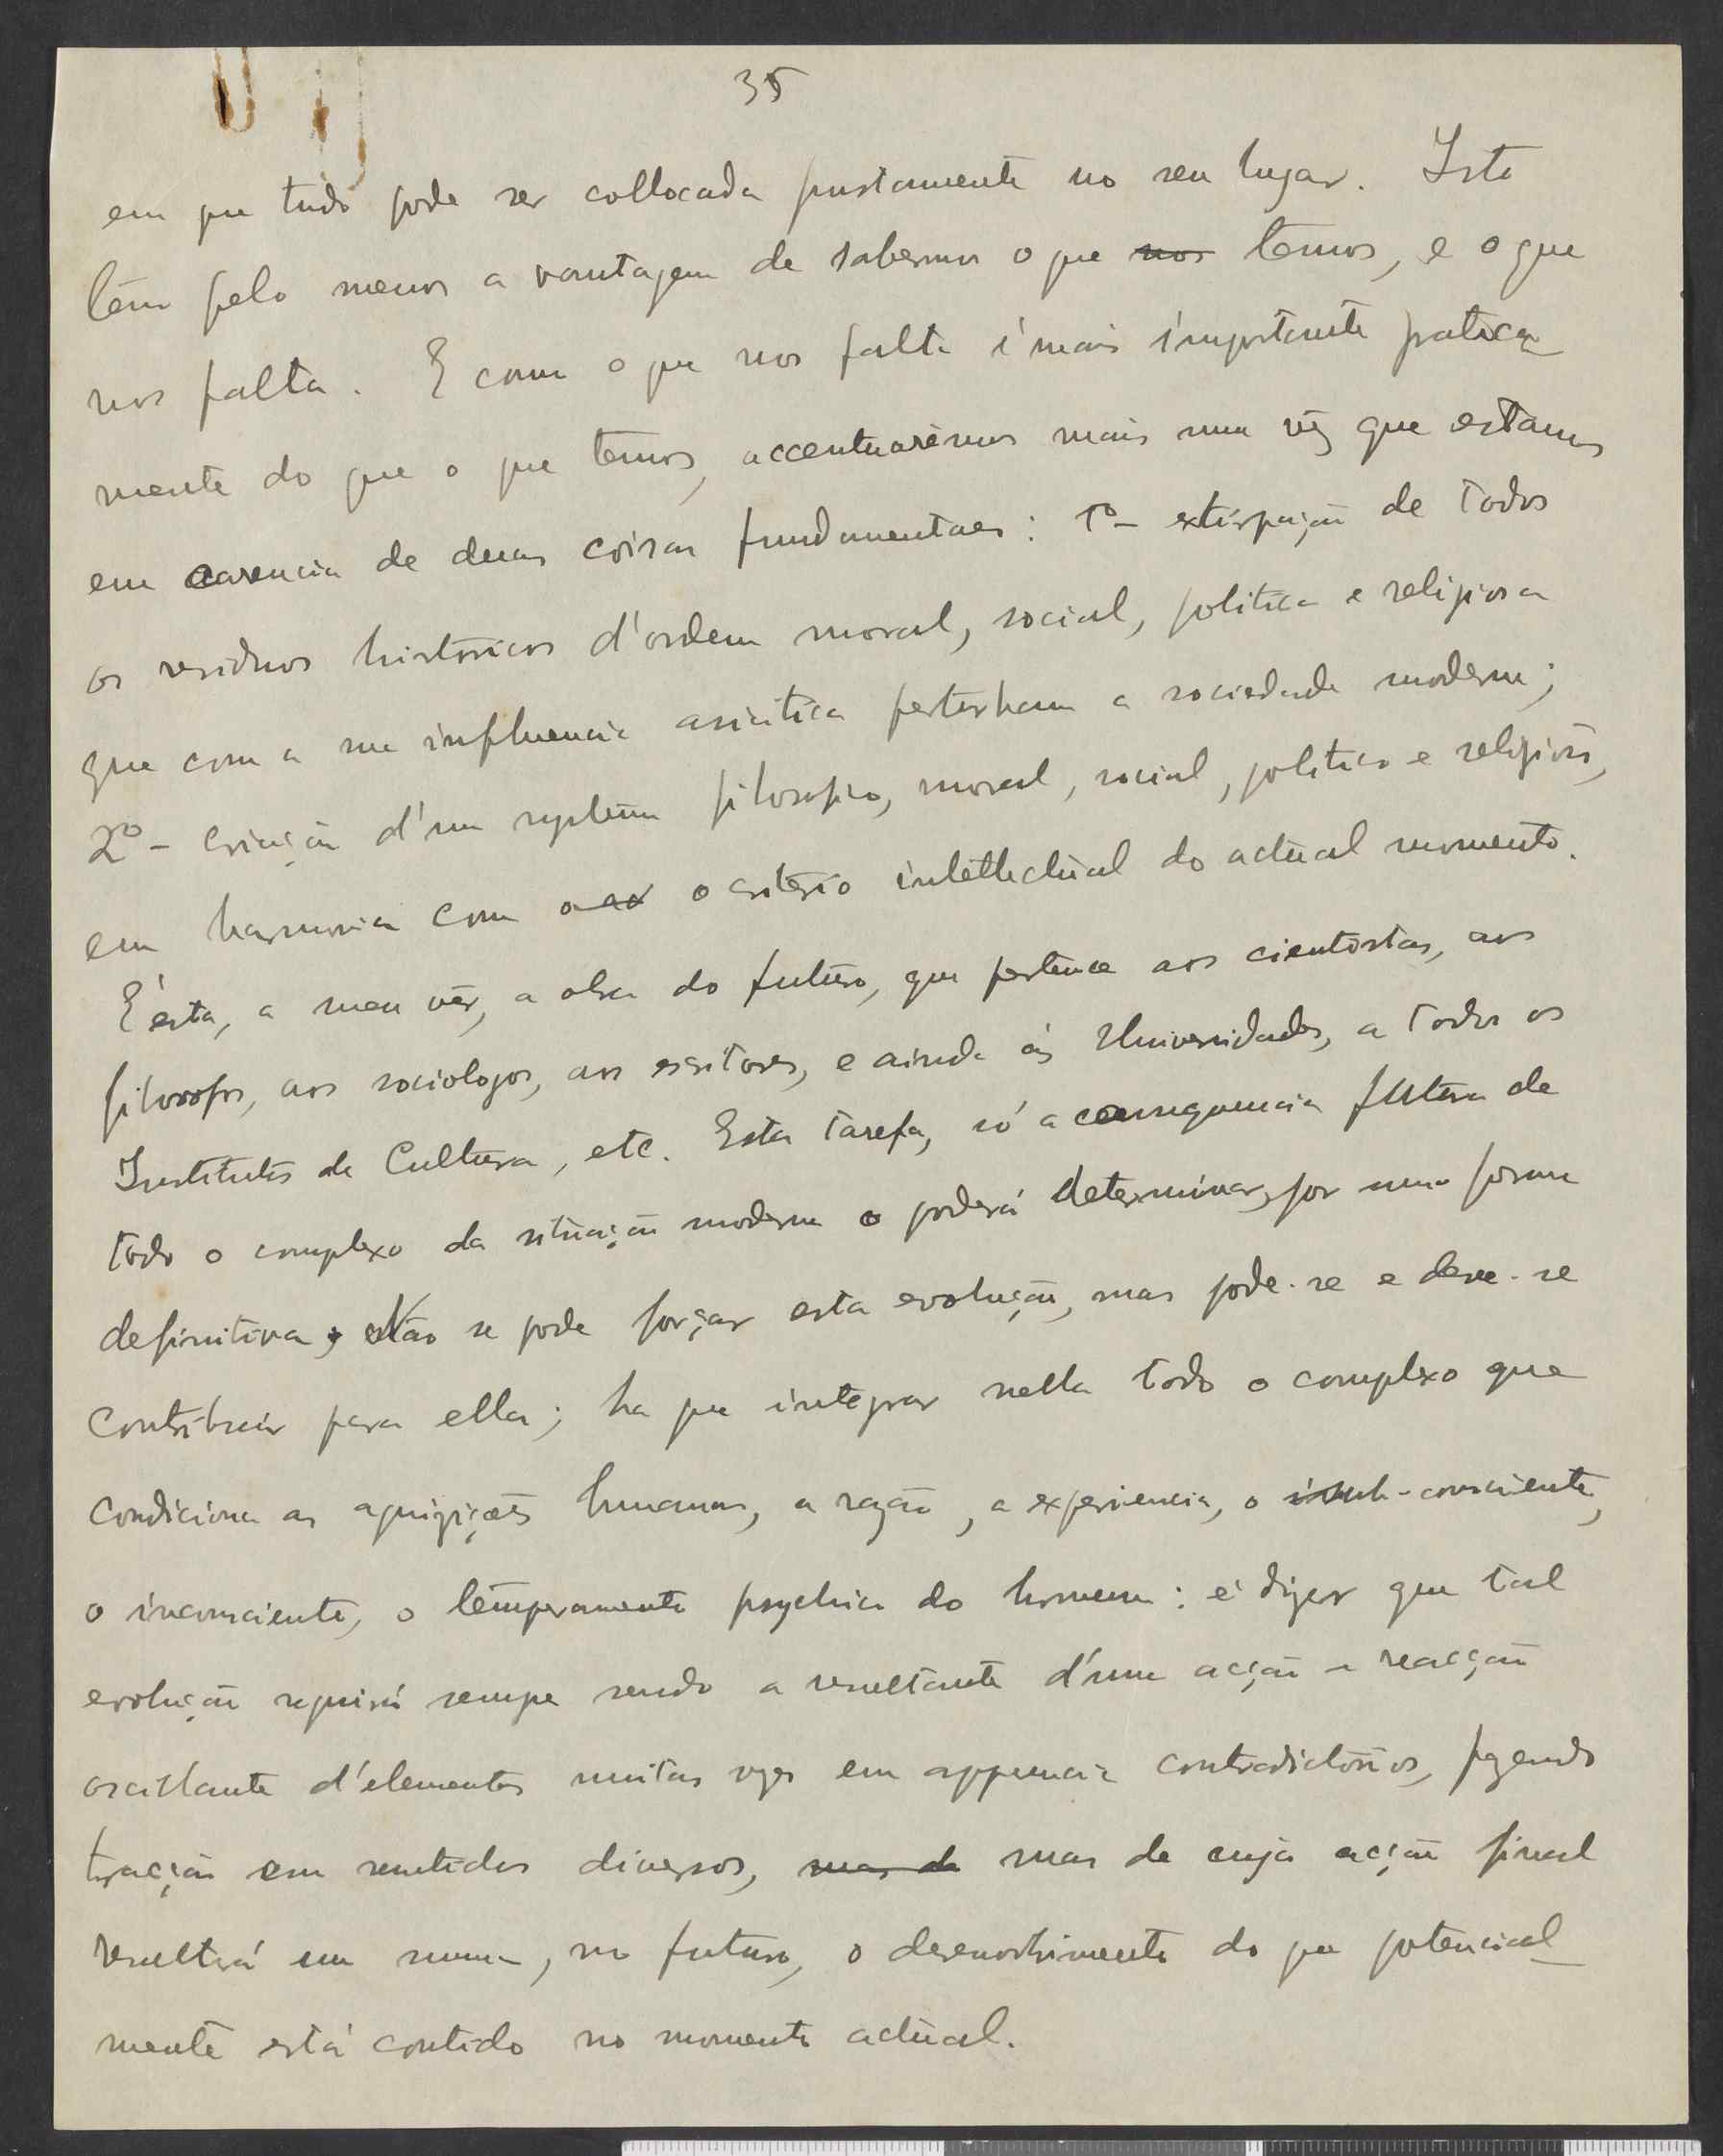 35
em que tudo pode ser collocada justamente no seu lugar. Isto
têm pelo menos a vantagem de sabermos o que nos temos, e o que
nos falta. E como o que nos falta é mais importante pratica-
mente do que o que temos, accentuarêmos mais uma vêz que estamos
em carencia de duas coisas fundamentaes: 1º- extirpação de todos
os residuos históricos d'ordem moral, social, politica e religiosa
que com a sua influencia asiatica perturbam a sociedade moderna;
2º- criação d'um systema filosofico, moral, social, politico e religioso,
em harmonia com o criterio intellectual do actual momento.
É esta, a meu vêr, a obra do futuro, que pertence aos cientistas, aos
filosofos, aos sociologos, aos escritores, e ainda ás Universidades, a todos os
Institutos de Cultura, etc. Esta tarefa, só a consequencia futura de
todo o complexo da situação moderna o poderá determinar, por uma forma
definitiva; Não se pode forçar esta evolução, mas pode-se e deve-se
contribuir para ella; ha que integrar nella todo o complexo que
condiciona as aquizições humanas, a razão, a experiencia, o sub-consciente,
o inconsciente, o temperamento psychico do homem: é dizer que tal
evolução seguirá sempre sendo a resultante d'uma acção e reacção
oscillante d'elementos muitas vezes em apparencia contradictórios, fazendo
tracção em sentidos diversos, mas de mas de cuja acção final
resultará em suma, no futuro, o desenvolvimento do que potencial-
mente está contido no momento actual.